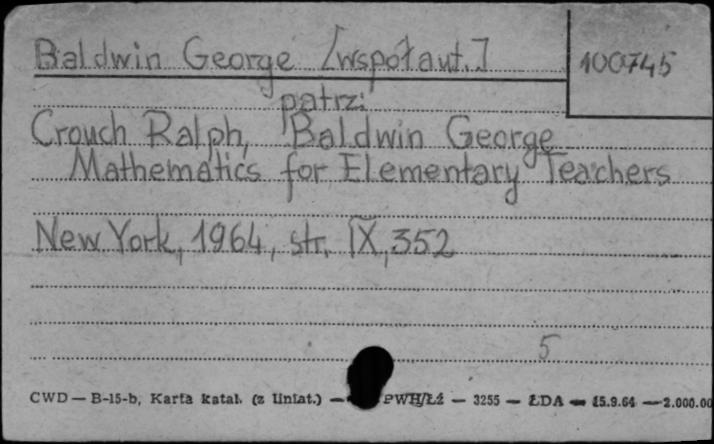 Baldwin George [współaut.]
100745
patrz:
Crouch Ralph, Baldwin George
Mathematics for Elementary Teachers
New York, 1964, str. IX, 352
5
CWD — B-15-b, Karta katal. (z liniat.) — PWH/Łź — 3255 — ŁDA — 15.9.64 — 2.000.00